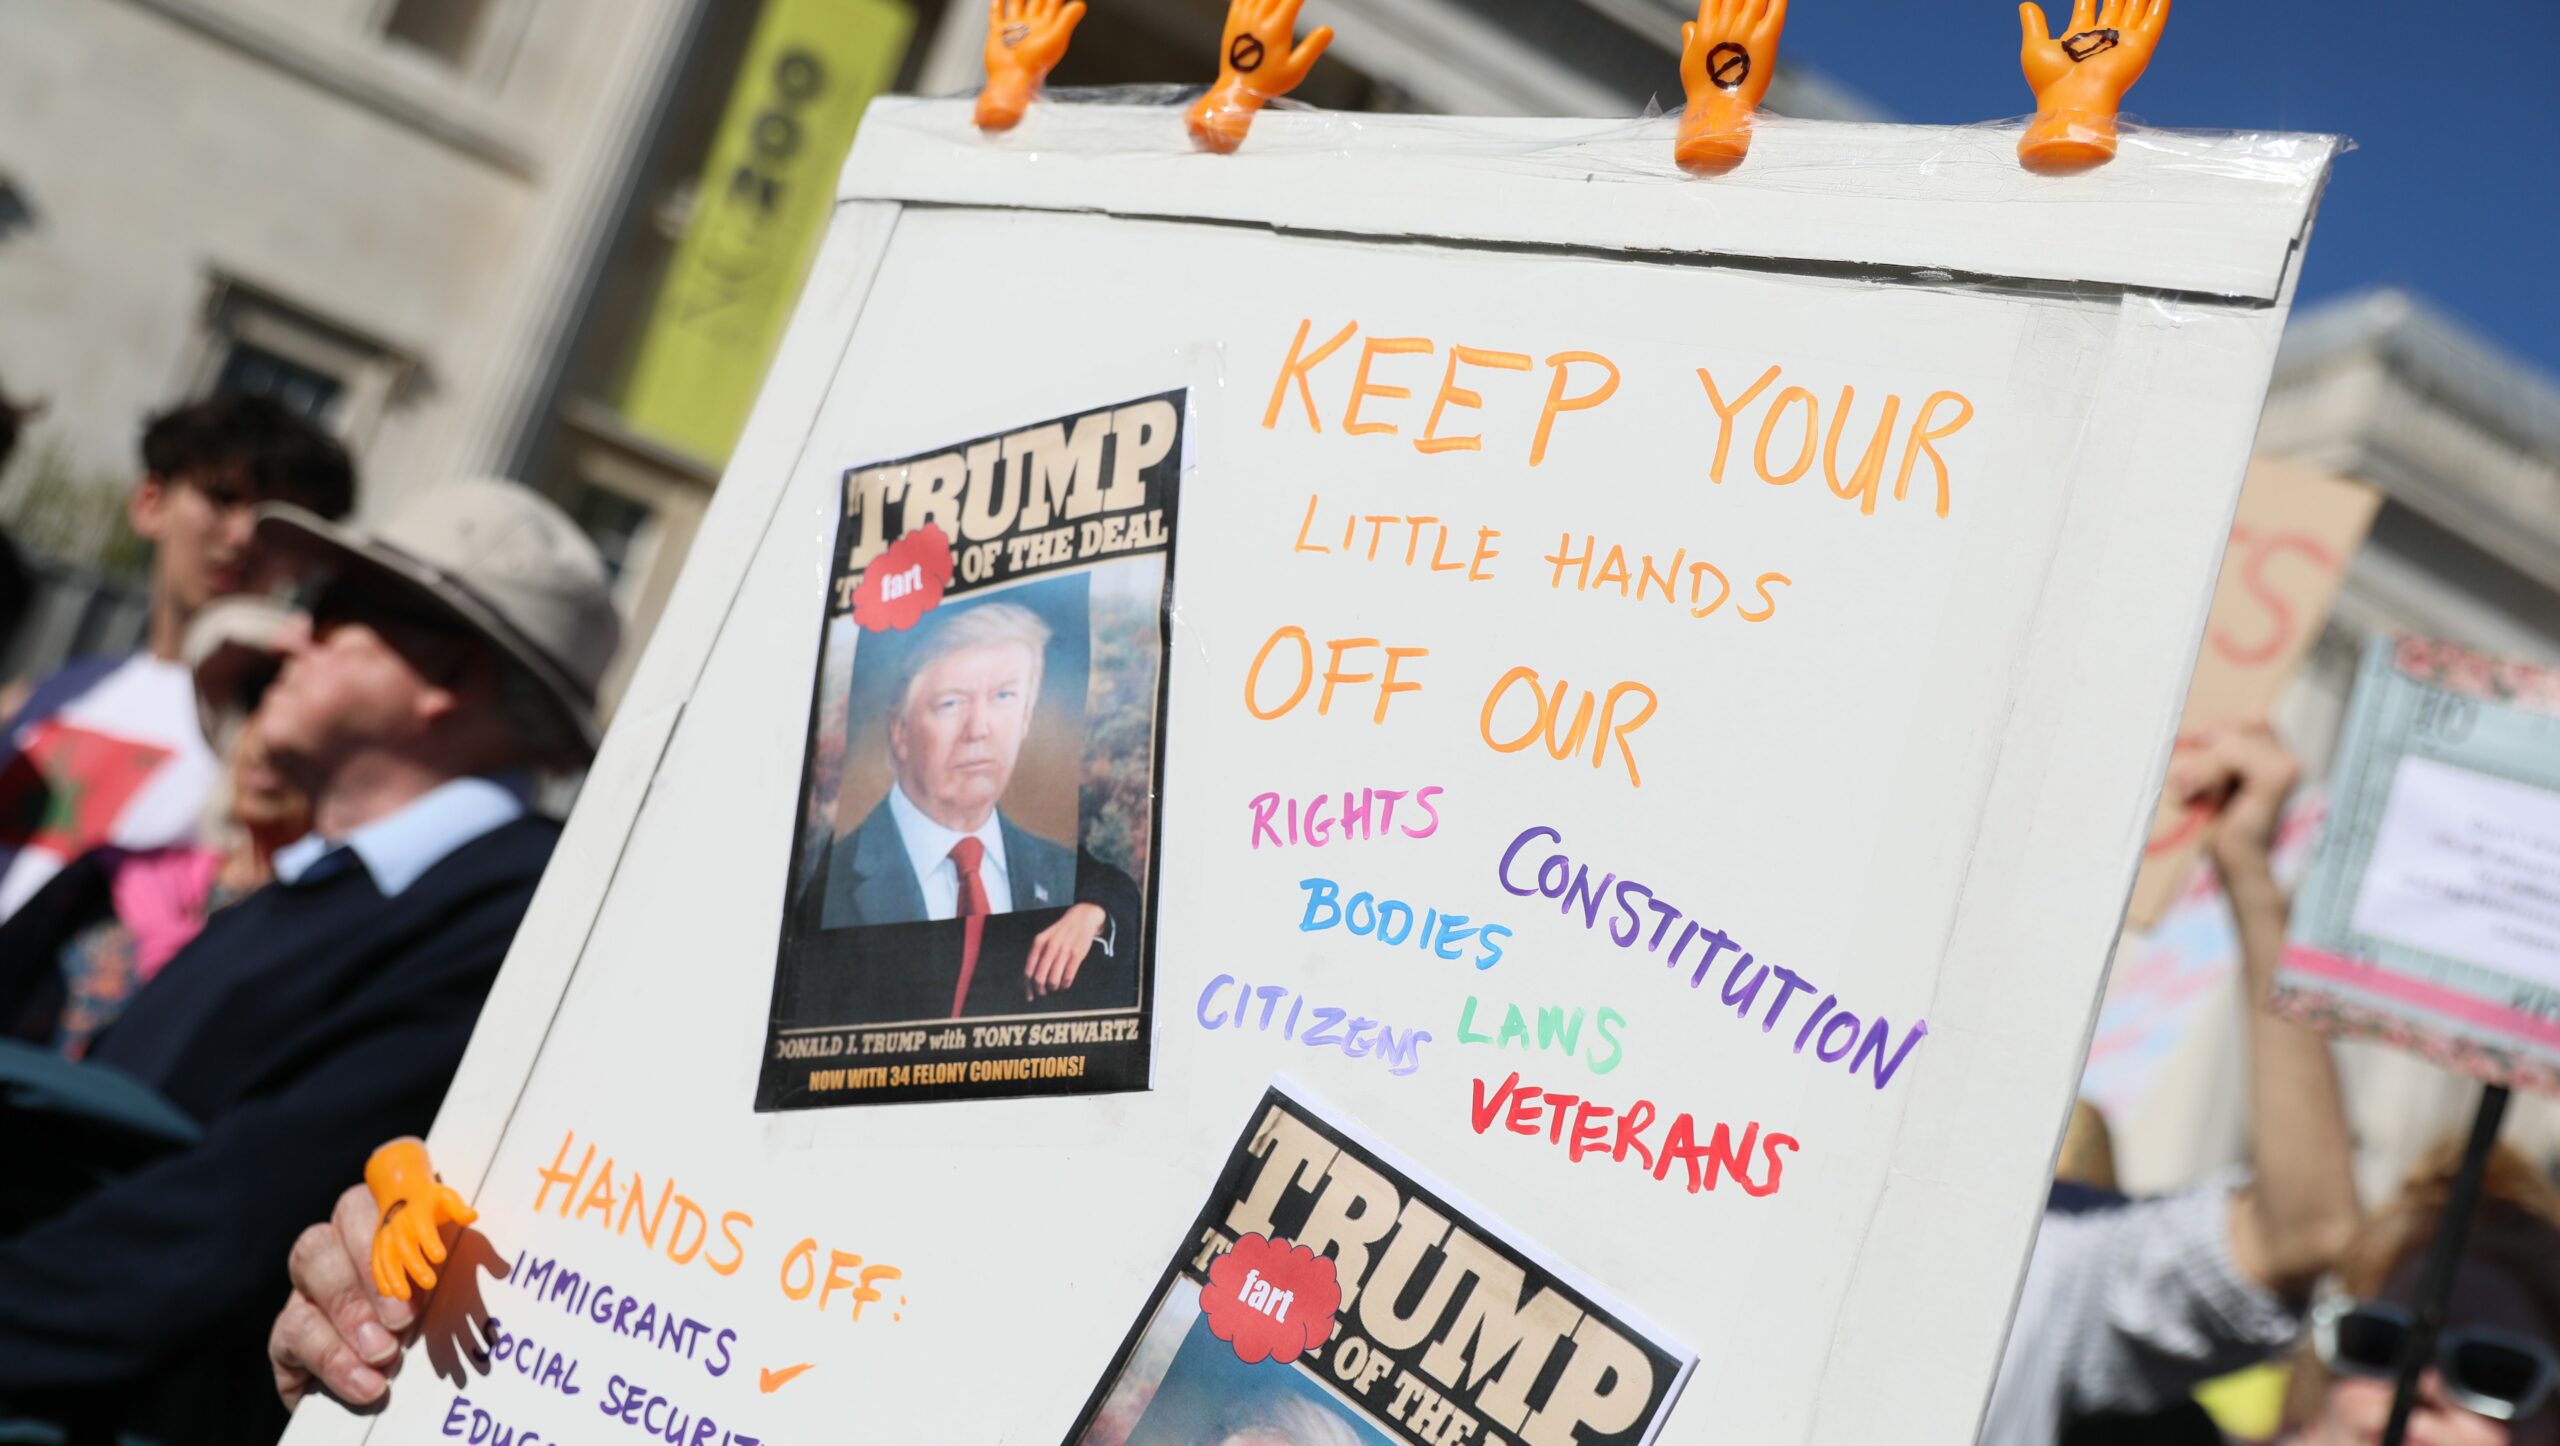 NG200
KEEP YOUR
LITTLE HANDS
OFF OUR
RIGHTS
CONSTITUTION
BODIES
CITIZENS
LAWS
VETERANS
TRUMP
fart
OF THE DEAL
DONALD J. TRUMP with TONY SCHWARTZ
NOW WITH 34 FELONY CONVICTIONS!
HANDS OFF:
IMMIGRANTS ✓
SOCIAL SECURIT
EDUC
TRUMP
fart
OF THE